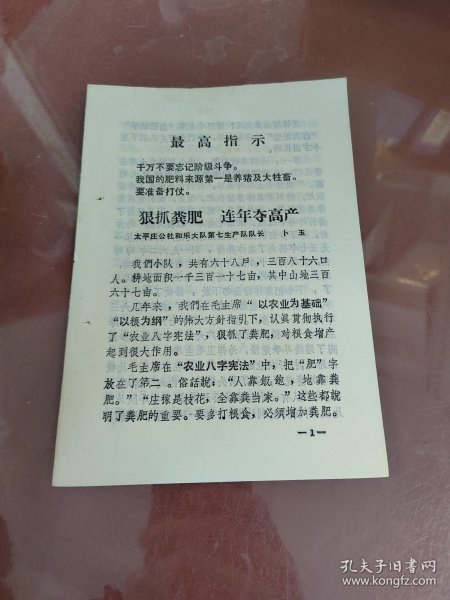 最高指示
千万不要忘记阶级斗争。
我国的肥料来源第一是养猪及大牲畜。
要准备打仗。
狠抓粪肥　连年夺高产
太平庄公社和乐大队第七生产队队长　卜　玉
我們小队，共有六十八戶，三百八十六口
人。耕地面积一千三百一十七亩，其中山地三百
六十七亩。
几年来，我們在毛主席“以农业为基础”
“以粮为纲”的伟大方針指引下，认真贯彻执行
了“农业八字宪法”，狠抓了粪肥，对粮食增产
起到很大作用。
毛主席在“农业八字宪法”中，把“肥”字
放在了第二。俗話說：“人靠飯飽，地靠粪
肥。”“庄稼是枝花，全靠粪当家。”这些都說
明了粪肥的重要。要多打粮食，必须增加粪肥。
—1—
孔夫子旧书网
www.kongfz.com